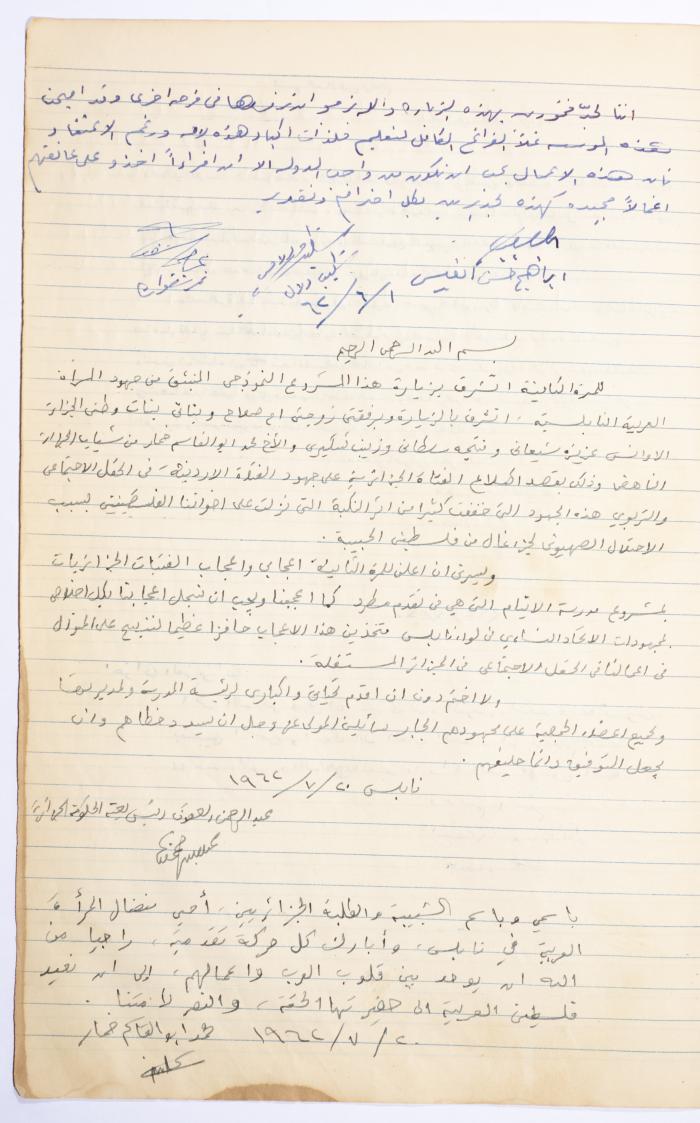 اننا لجدّ فخورين بهذه الزيارة والا نرجو ان نزورها في فرصه اخرى وقد اعجبن
بهذه المؤسسه
فان هذه الاعمال يجب ان تكون من واجب الدوله الا ان افراداً اخذو على عاتقهم
اعمالاً مجيده كهذه لجديرين بكل احترام وتقدير
ابراهيم حسن
١/٦/٦٢
بسم الله الرحمن الرحيم
للمرة الثانية اتشرف بزيارة هذا المشروع النموذجي المنبثق من جهود المرأة
العربية النابلسية، اتشرف بالزيارة وبرفقتي زوجتي ام صلاح وبناتي بنات وطني الجزائر
الاوانس عزيزة شيعاني ونتيجه سلطاني وزينب والأخ محمد ابو القاسم خمار من شباب الجزائر
الناهض وذلك بقصد اطلاع الفتاة الجزائرية على جهود الفتاة الاردنية في الحقل الاجتماعي
والتربوي هذه الجهود التي خففت كثيرا من اثر النكبة التي نزلت على اخواننا الفلسطينيين بسبب
الاحتلال الصهيوني لجزء غال من فلسطين الحبيبة.
ويسرني ان اعلن للمرة الثانية اعجابي واعجاب الفتيات الجزائريات
بمشروع مدرسة الايتام التي هي في تقدم مطرد كما اعجبنا ويجب ان نسجل اعجابنا بكل اخلاص
لمجهودات الاتحاد النسائي في لواء نابلس متخذين هذا الاعجاب حافزا عظيما لننسج على المنوال
في اعمالنا في الحقل الاجتماعي في الجزائر المستقلة.
ولا اختم دون ان اقدم تحياتي واكباري لرئيسة المدرسة ولمديرتها
ولجميع اعضاء الجمعية على مجهودهم الجبار سائلين المولى عز وجل ان يسدد خطاهم وان
يجعل التوفيق دائما حليفهم.
نابلس ٢٠/٧/١٩٦٢
عبد الرحمن العقون رئيس بعثة الحكومة الجزائرية
باسمي وباسم الشبيبة والطلبة الجزائريين، أحيي نضال المرأة
العربية في نابلس، وأبارك كل حركة تقدمية، راجيا من
الله ان يوحد بين قلوب العرب واعمالهم، الى ان نعيد
فلسطين العربية الى حضيرتها الحقة، والنصر لأمتنا.
٢٠/٧/١٩٦٢ محمد ابو القاسم خمار